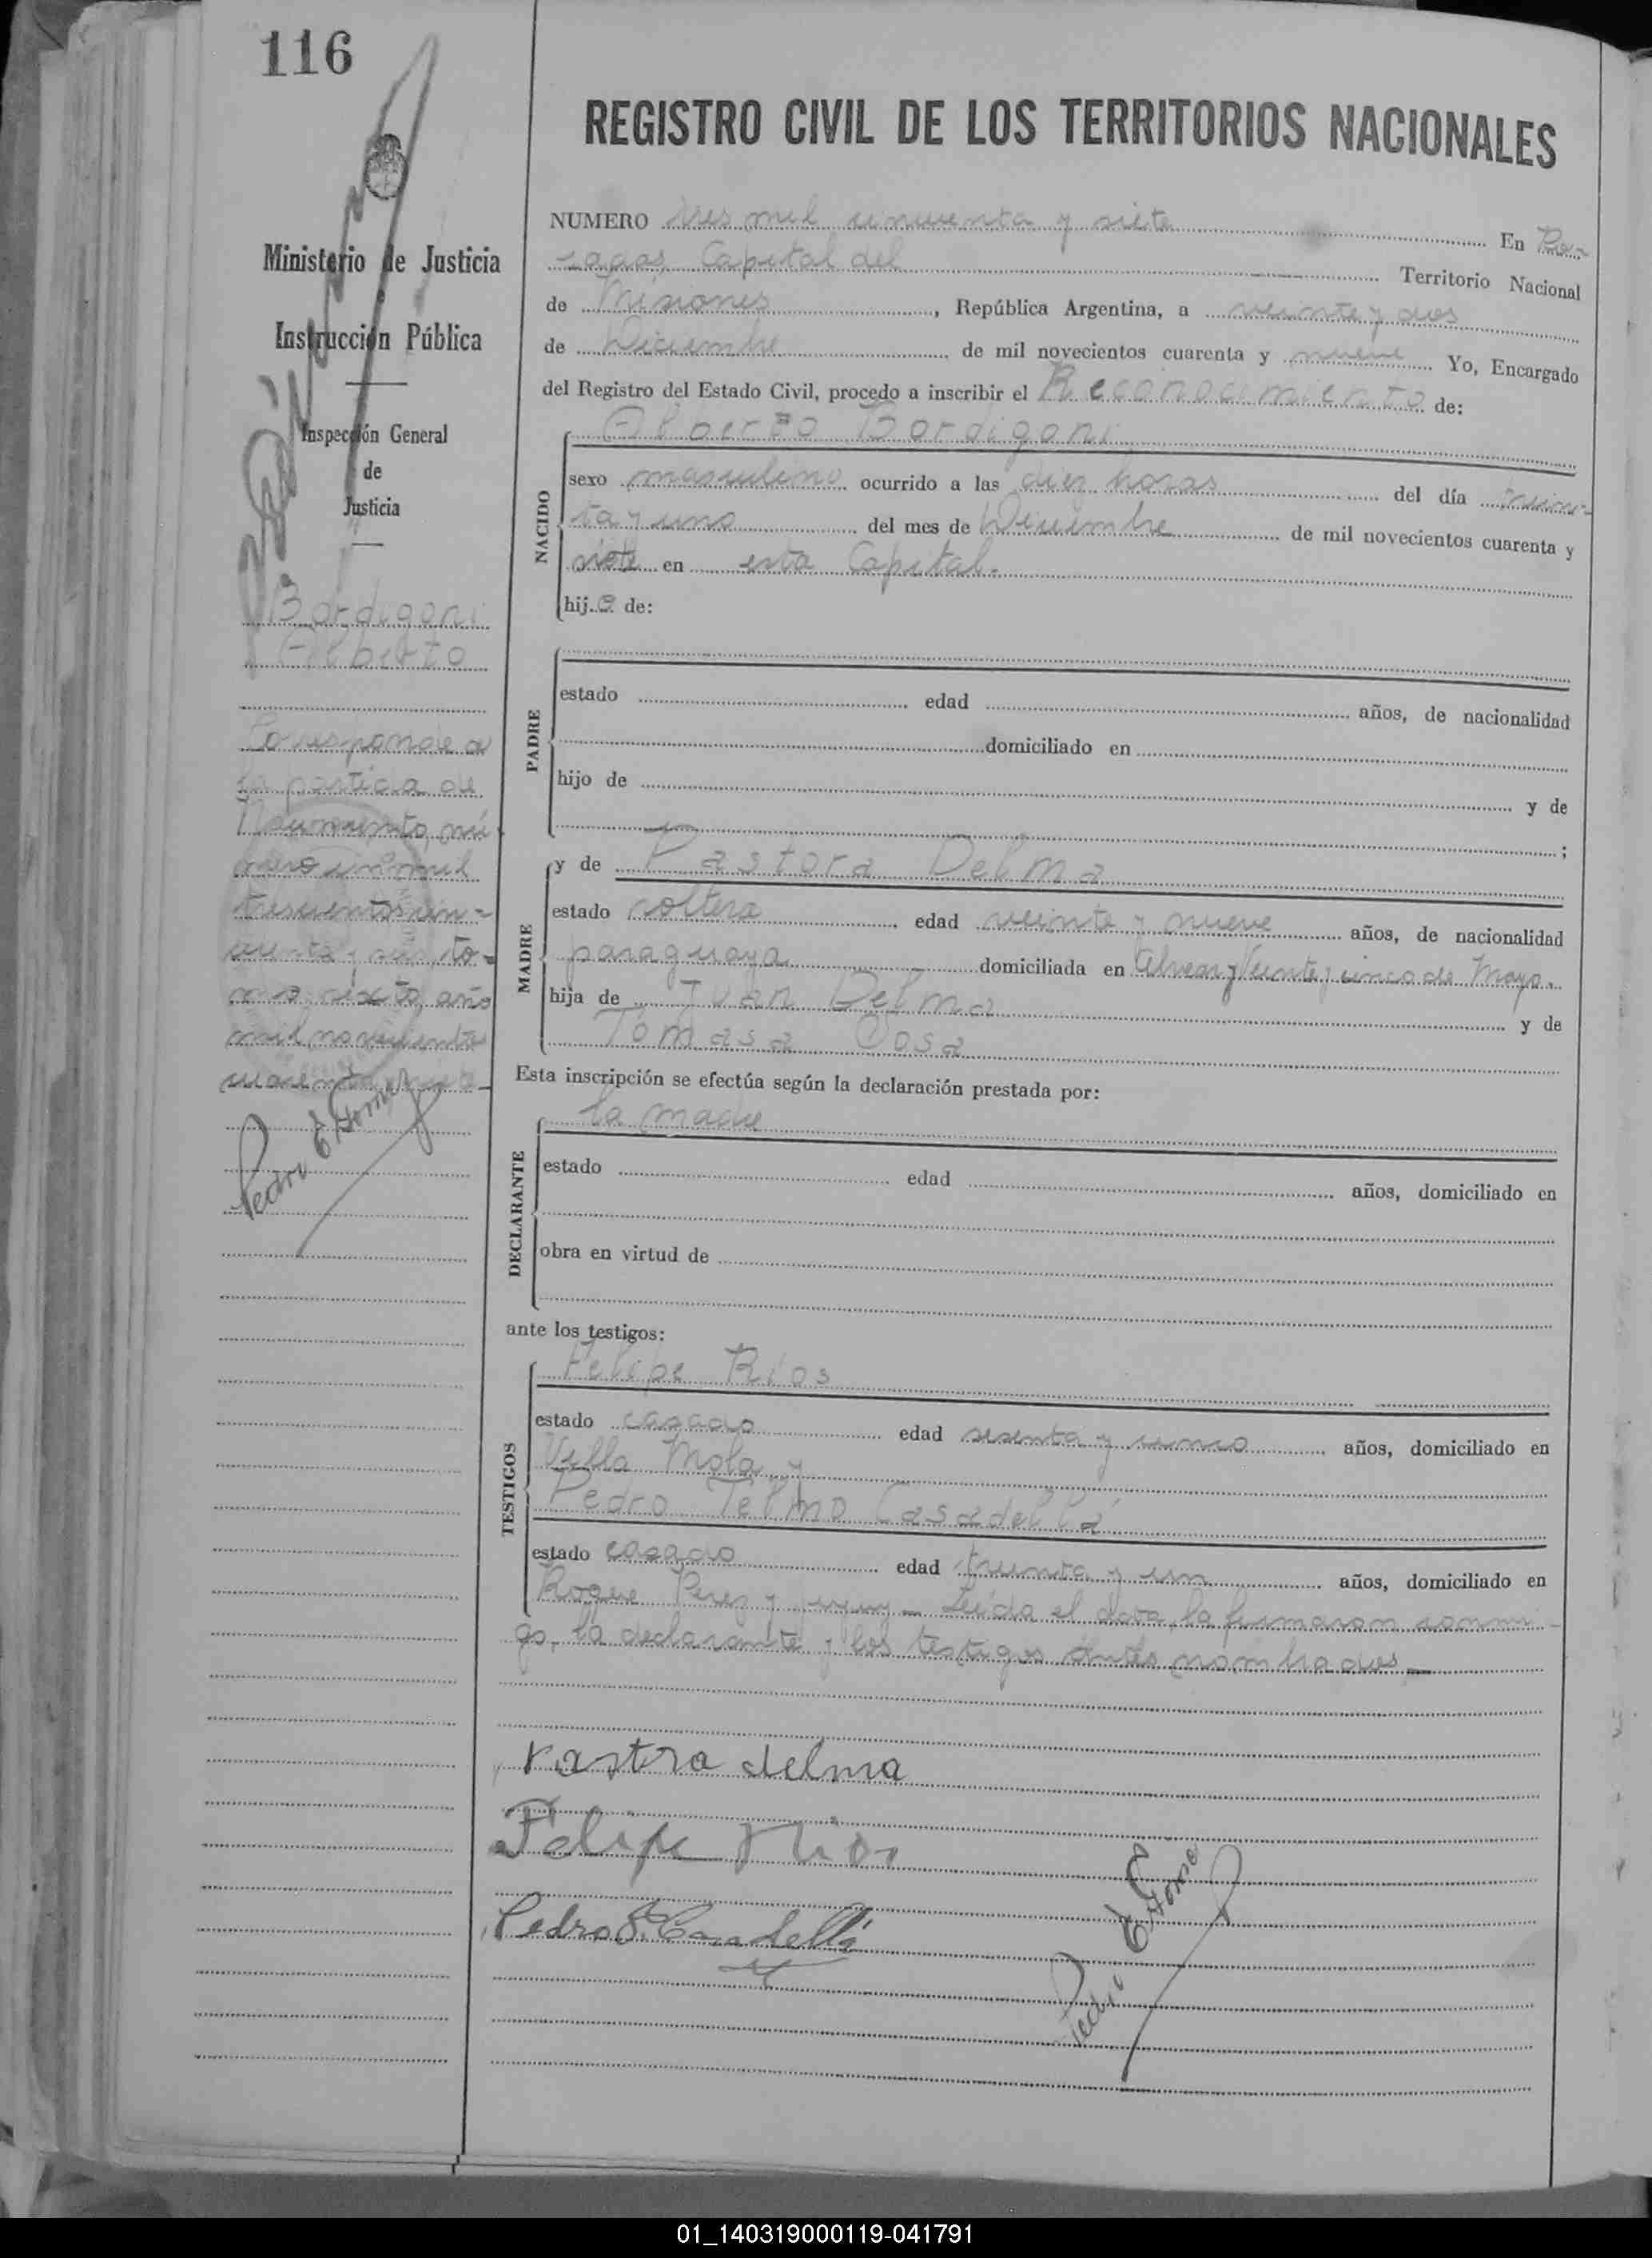 116
REGISTRO CIVIL DE LOS TERRITORIOS NACIONALES
Ministerio de Justicia
e
Instrucción Pública
Inspección General
de
Justicia
Bordigoni
Alberto
Corresponde a
la partida de
Nacimiento, nú-
mero un mil
trescientos cin-
cuenta y seis, to-
mo sexto, año
mil novecientos
cuarenta
Pedro E. Gomez
NUMERO tres mil cincuenta y siete En Po-
sadas, Capital del Territorio Nacional
de Misiones, República Argentina, a veinte y dos
de Diciembre de mil novecientos cuarenta y nueve Yo, Encargado
del Registro del Estado Civil, procedo a inscribir el Reconocimiento de:
Alberto Bordigoni
NACIDO
sexo masculino ocurrido a las diez horas del día trein-
ta y uno del mes de Diciembre de mil novecientos cuarenta y
siete en esta Capital.
hijo de:
PADRE
estado edad años, de nacionalidad
domiciliado en
hijo de y de
;
MADRE
y de Pastora Delma
estado soltera, edad veinte y nueve años, de nacionalidad
paraguaya domiciliada en Alvear y Veinte y cinco de Mayo.
hija de Juan Delma y de
Tomasa Sosa
Esta inscripción se efectúa según la declaración prestada por:
DECLARANTE
la madre
estado edad años, domiciliado en
obra en virtud de
ante los testigos:
TESTIGOS
Felipe Ríos
estado casado edad sesenta y cinco años, domiciliado en
Villa Mota y
Pedro Telmo Casadellá
estado casado edad treinta y un años, domiciliado en
Roque Perez y Jujuy - Leída el acta, la firmaron conmi-
go, la declarante y los testigos antes nombrados
Pastora delma
Felipe Rios
Pedro T. Casadellá
Pedro E. Gomez
01_140319000119-041791